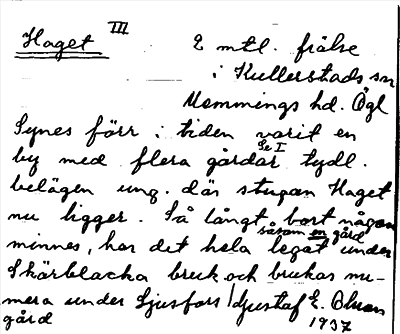 Haget III
2 mtl. frälse
i Kullerstads sn
Memmings hd. Ögl
Synes förr i tiden varit en
by med flera gårdar Se I tydl.
belägen ung. där stugan Haget
nu ligger. Så långt bort någon
minnes, har det hela legat såsom en gård under
Skärblacka bruk och brukas nu-
mera under Ljusfors gård / Gustaf E. Olsson
1937